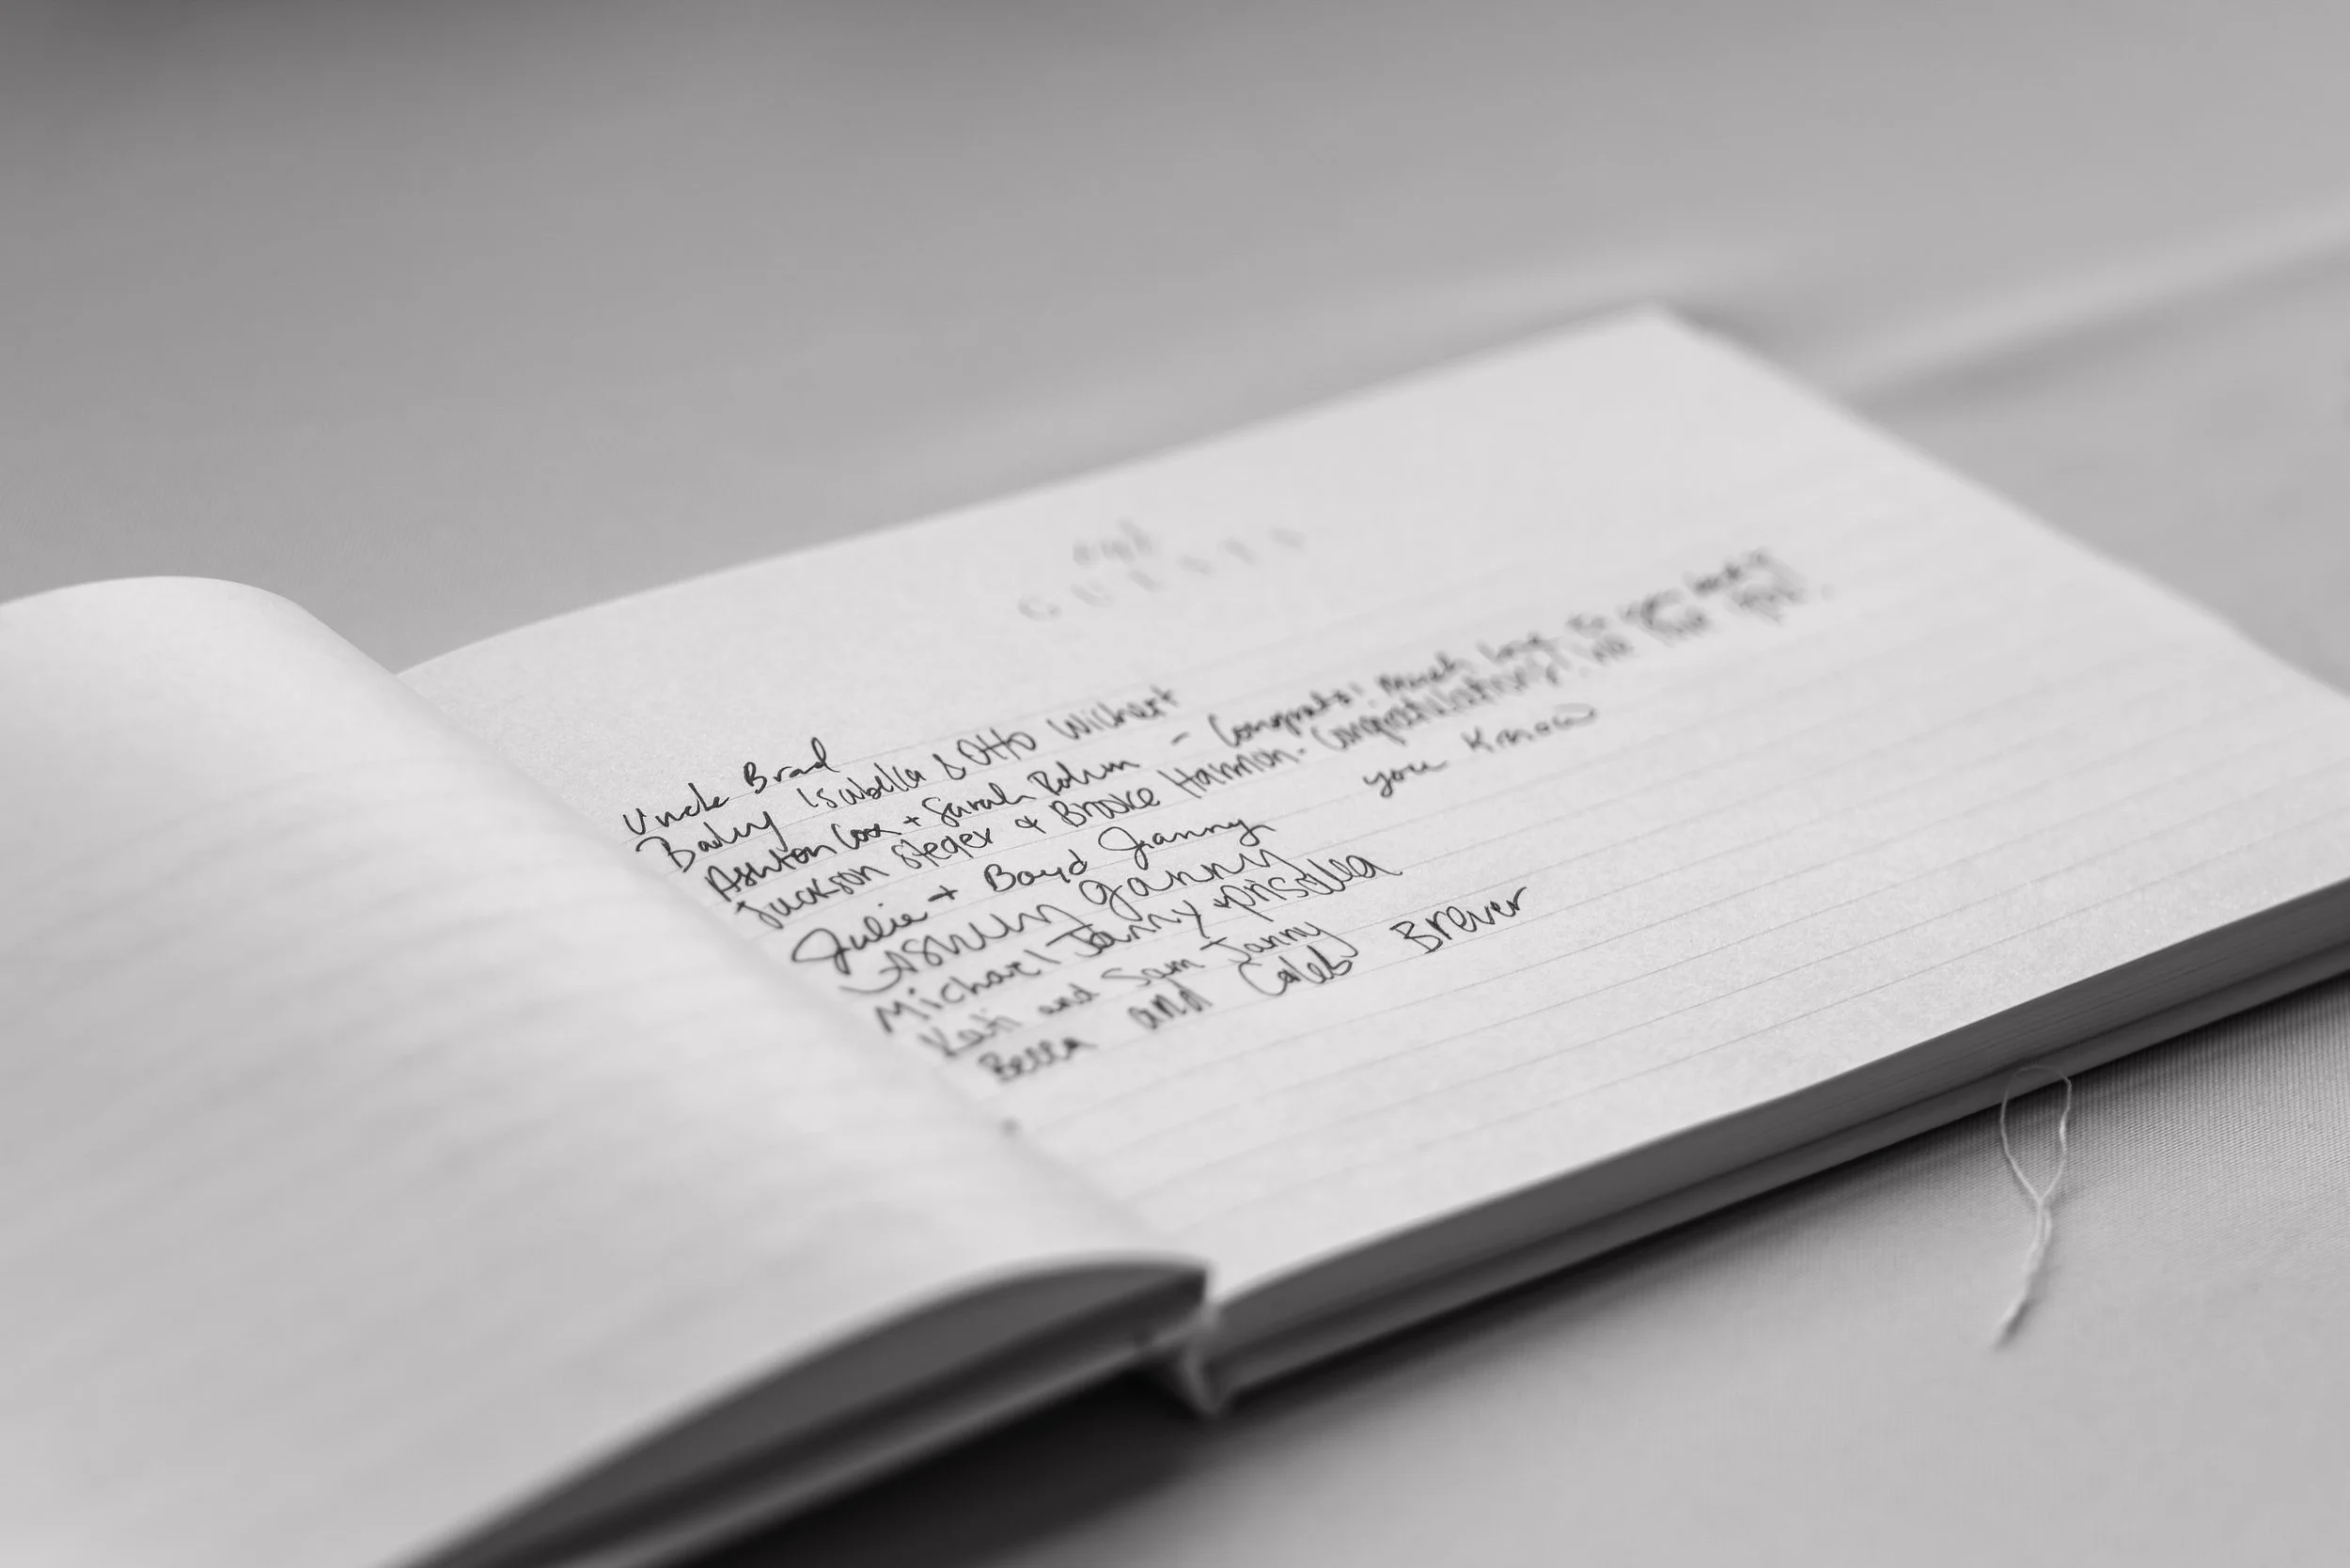 our
GUESTS
Uncle Brad
Baily Isabella & Otto Wichert
Ashton Cox + Sarah Rohm - Congrats! Much love to you both!
Jackson Steger & Brooke Harmon - Congratulations! We love you!
Julie + Boyd Janny you know
Ashlyn Janny
Michael Janny + Priscilla
Kati and Sam Janny
Bella and Caleb Brewer